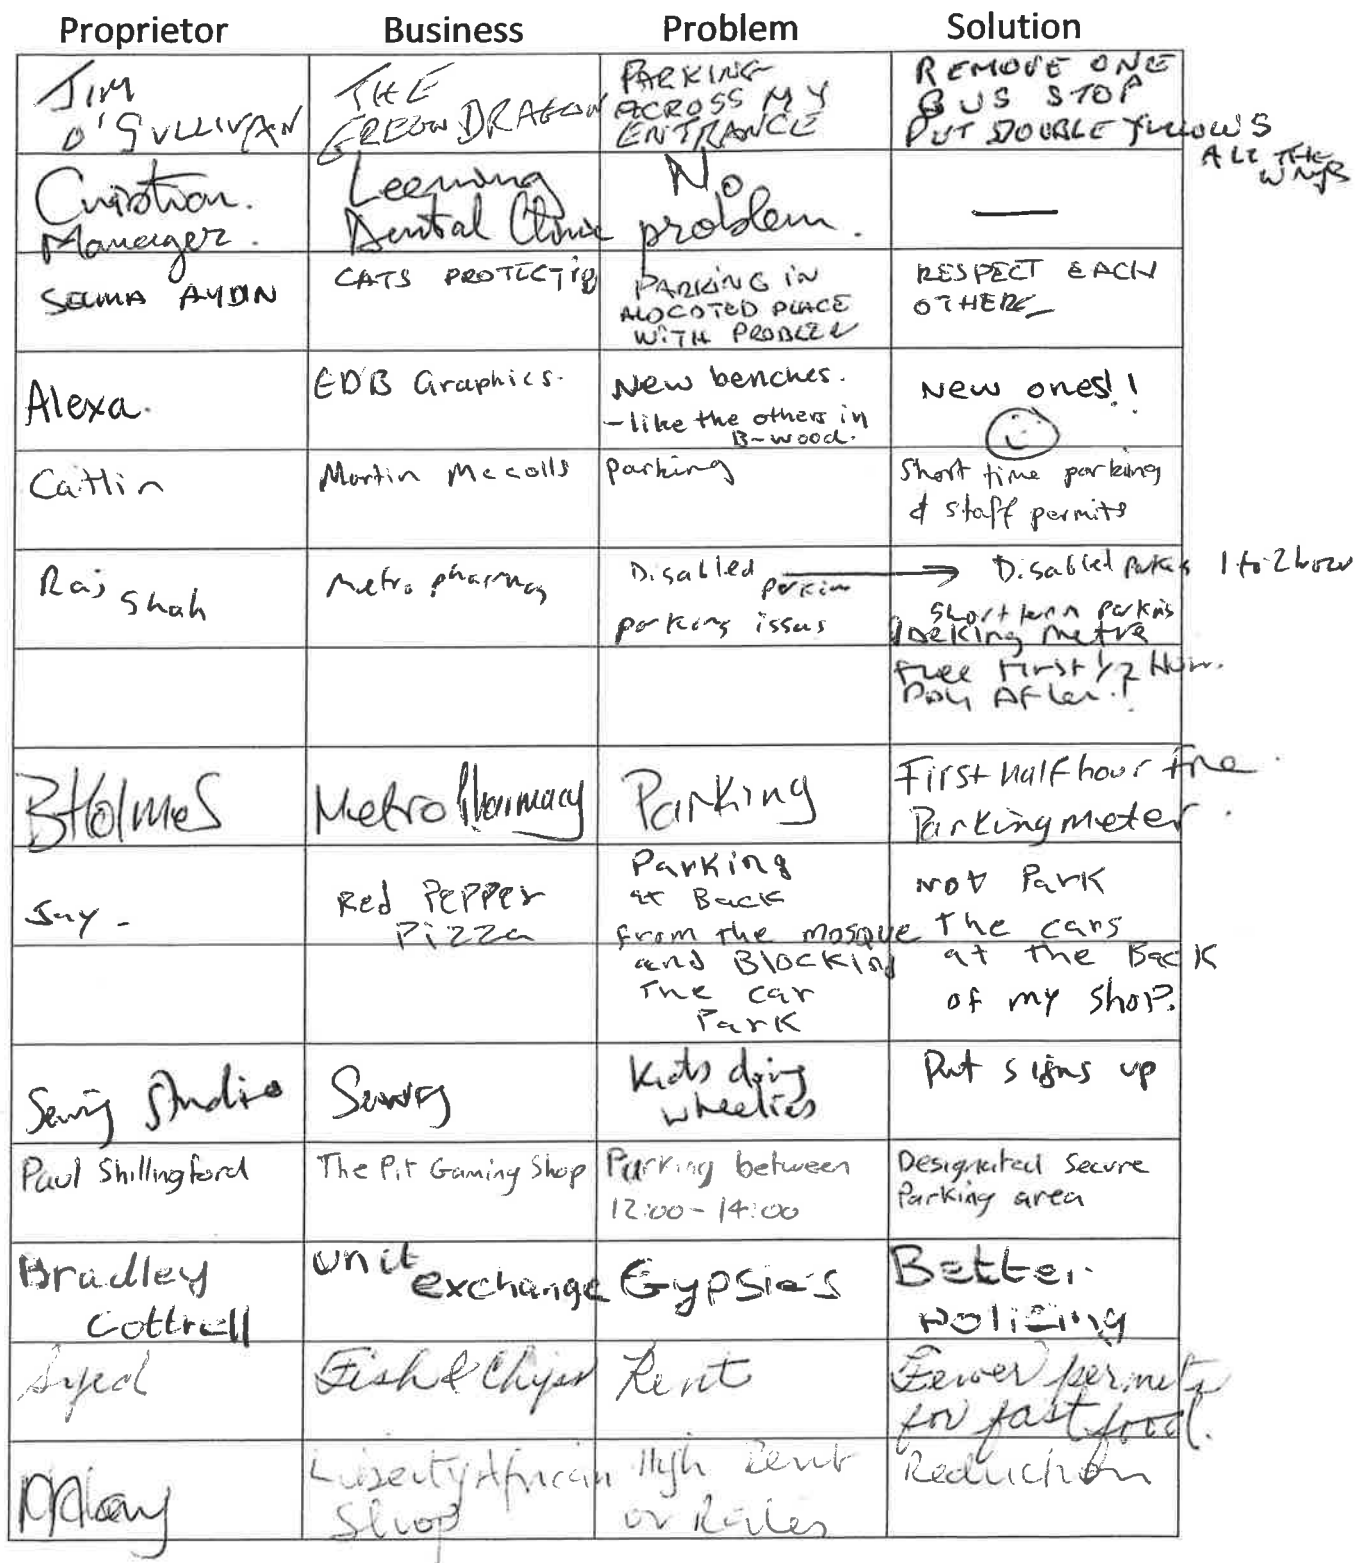 Proprietor Business Problem Solution
JIM
O'SULLIVAN
THE
GREEN DRAGON
PARKING
ACROSS MY
ENTRANCE
REMOVE ONE
BUS STOP
PUT DOUBLE YELLOWS
ALL THE
WAY
Manager.
Leeming
Dental Clinic
No
problem.
—
SELMA AYDIN
CATS PROTECTIO
PARKING IN
ALOCOTED PLACE
WITH PROBLEM
RESPECT EACH
OTHERE
Alexa.
EDB Graphics.
New benches.
- like the others in
B-wood.
New ones!!
Caitlin
Martin Mccolls
parking
Short time parking
& staff permits
Raj Shah
Metro pharmacy
Disabled parking
parking issus
Disabled 1 to 2 hour
Short term
Parking metre
Free First 1/2 Hour.
Pay After.!
BHolmes
Metro Pharmacy
Parking
First half hour free.
Parking meter.
Jay -
Red Pepper
Pizza
Parking
at Back
from the mosque
and Blocking
The car
Park
not Park
The cars
at the Back
of my shop.
Sewing Studio
Sewing
Kids doing
wheelies
Put signs up
Paul Shillingford
The Pit Gaming Shop
Parking between
12:00 - 14:00
Designated Secure
Parking area
Bradley
Cottrell
unit
exchange
Gypsies
Better
policing
Syed
Fish & Chips
Rent
Fewer permits
for fast food.
Liberty African
Shop
High Rent
or Rates
Reduction